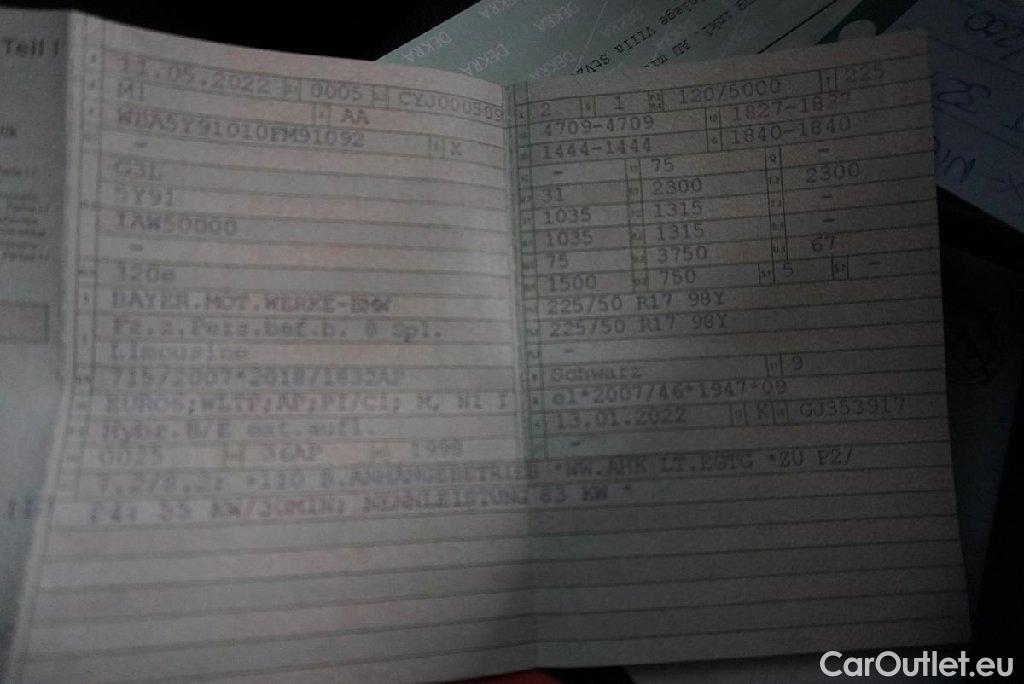 Teil I
DEKRA DEKRA DEKRA
DEKRA DEKRA
11.05.2022 0005 CYJ000509
M1 AA
WBA5Y91010FM91092 X
-
G3L
5Y91
IAW50000
-
320e
BAYER.MOT.WERKE-BMW
Fz.z.Pers.bef.b. 8 Spl.
Limousine
715/2007*2018/1832AP
EURO6;WLTP;AP;PI/CI; M, N1 I
Hybr.B/E ext.aufl.
0025 36AP 1998
2 1 120/5000 225
4709-4709 1827-1827
1444-1444 1840-1840
- 75 -
31 2300 2300
1035 1315 -
1035 1315 -
75 3750 67
1500 750 5 -
225/50 R17 98Y
225/50 R17 98Y
-
Schwarz 9
e1*2007/46*1947*09
13.01.2022 K GJ353917
-
7.2/8.2: +110 B.ANHÄNGEBETRIEB *WW.AHK LT.EGTG *ZU P2/
P4: 55 KW/30MIN; NENNLEISTUNG 83 KW *
CarOutlet.eu